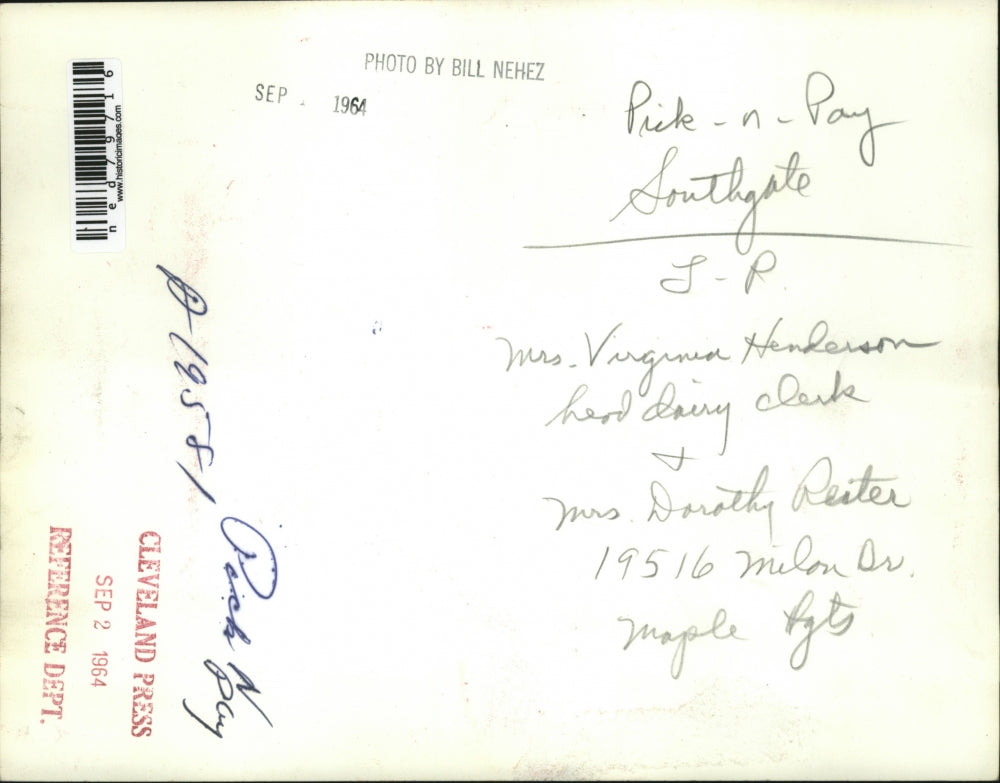 PHOTO BY BILL NEHEZ
SEP 1964
Pick-n-Pay
Southgate
J-P
Mrs. Virginia Henderson
head dairy clerk
+
Mrs. Dorothy Reiter
19516 Milan Dr.
Maple Hgts
ned79716
www.historicimages.com
A-19581 Pick N
Pay
CLEVELAND PRESS
SEP 2 1964
REFERENCE DEPT.